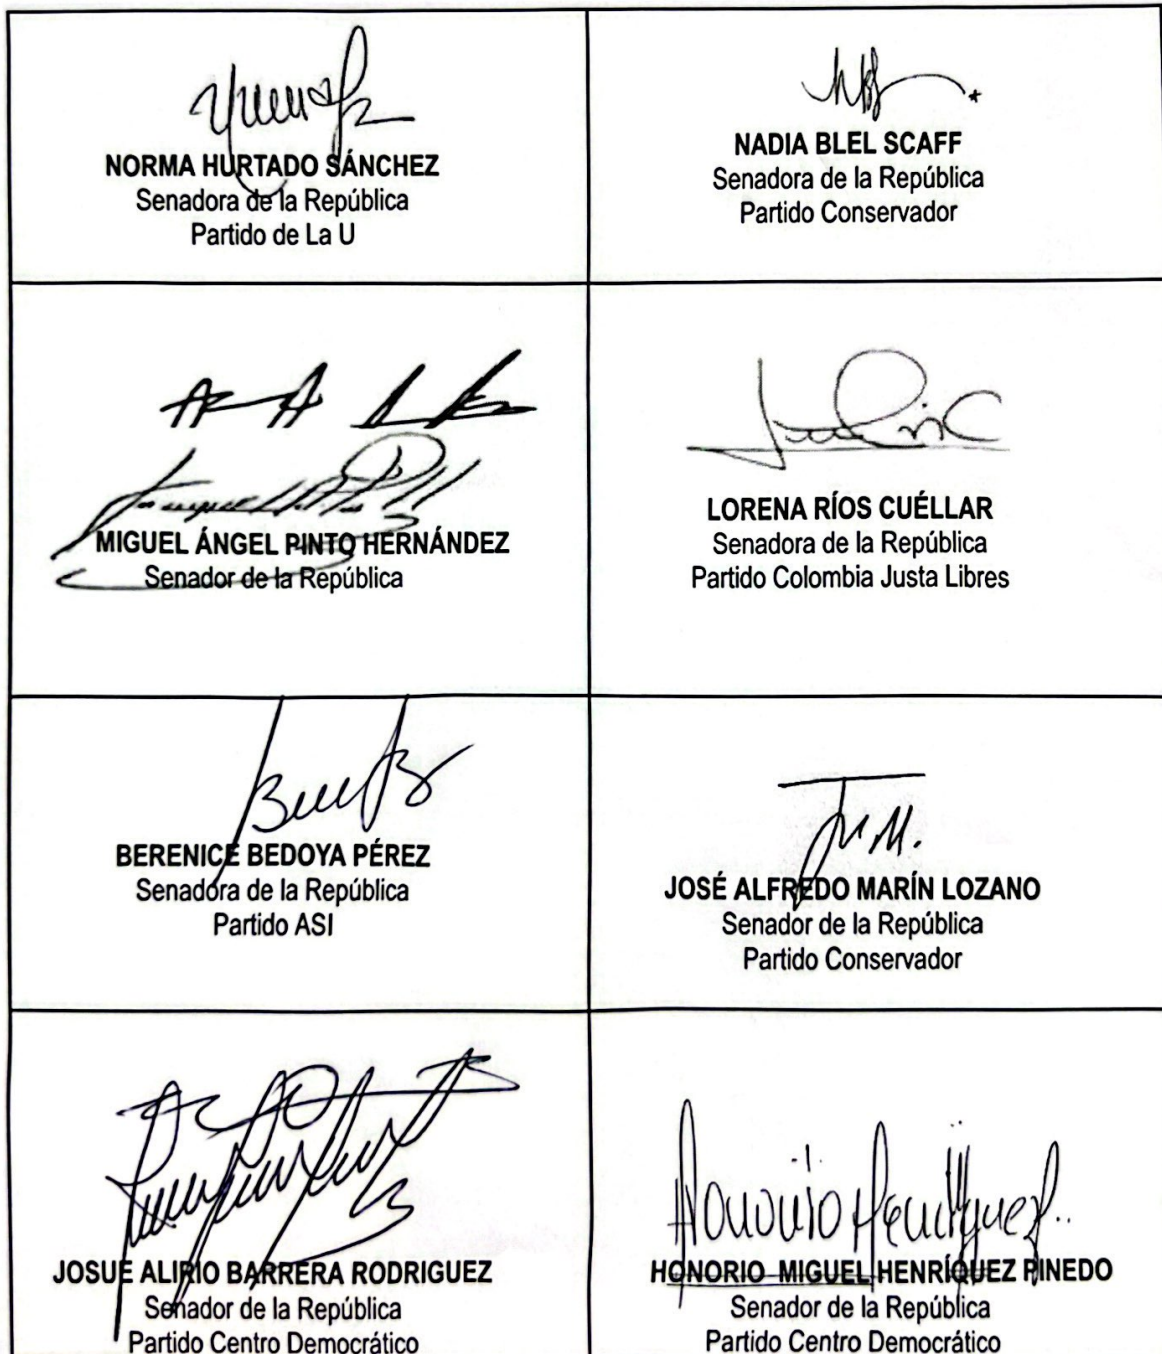 NORMA HURTADO SÁNCHEZ
Senadora de la República
Partido de La U
NADIA BLEL SCAFF
Senadora de la República
Partido Conservador
MIGUEL ÁNGEL PINTO HERNÁNDEZ
Senador de la República
LORENA RÍOS CUÉLLAR
Senadora de la República
Partido Colombia Justa Libres
BERENICE BEDOYA PÉREZ
Senadora de la República
Partido ASI
JOSÉ ALFREDO MARÍN LOZANO
Senador de la República
Partido Conservador
JOSUE ALIRIO BARRERA RODRIGUEZ
Senador de la República
Partido Centro Democrático
Honorio Henríquez
HONORIO MIGUEL HENRÍQUEZ PINEDO
Senador de la República
Partido Centro Democrático